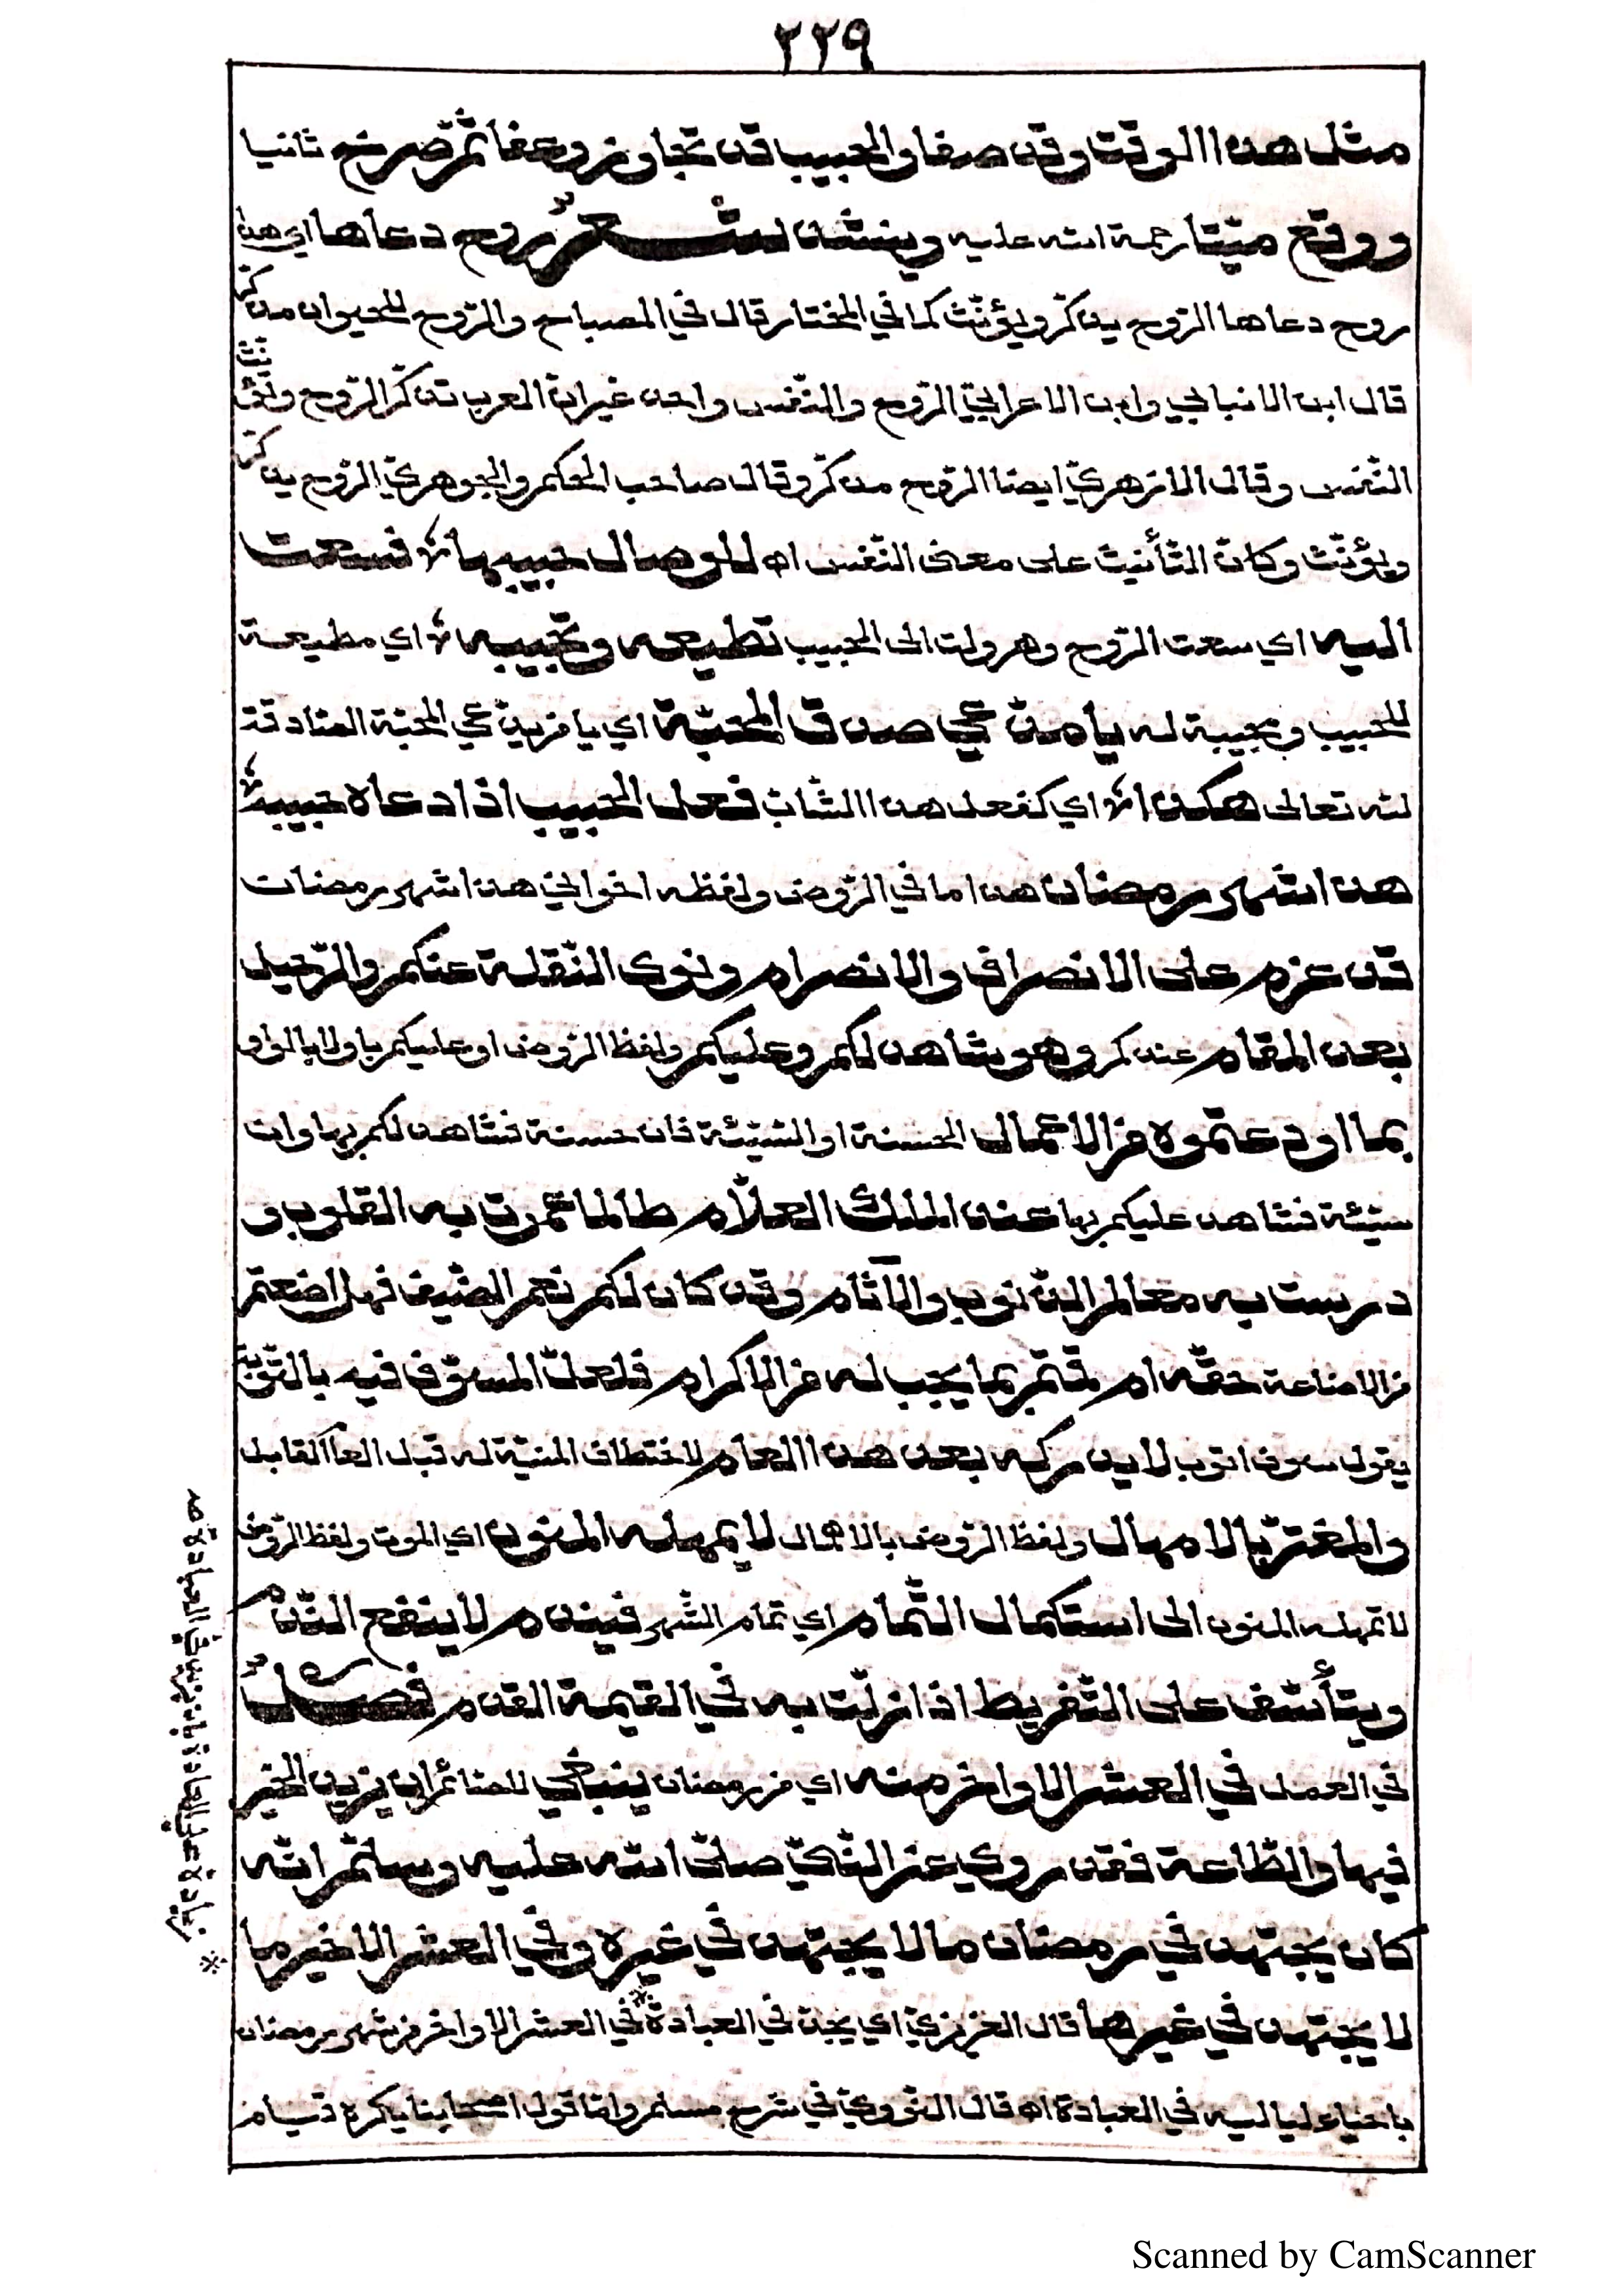 ٢٢٩
مثل هذا الوقت وقد صفا والحبيب قد تجاوز وعفا ثم صرخ ثانيا
ووقع ميتا رحمة الله عليه وينشد شعر روح دعاها اي هذه
روح دعاها الروح يذكر ويؤنث كما في المختار قال في المصباح والروح للحيوان مذكر
قال ابن الانباري وابن الاعرابي الروح والنفس واحد غير ان العرب تذكر الروح وتؤنث
النفس وقال الازهري ايضا الروح مذكر وقال صاحب المحكم والجوهري الروح يذكر
ويؤنث وكان التأنيث على معنى النفس اه للوصال حبيبها فسعت
اليه اي سعت الروح وهرولت الى الحبيب تطيعه وتجيبه اي مطيعة
للحبيب ومجيبة له يا مدعي صدق المحبة اي يا من يدعي المحبة الصادقة
لله تعالى هكذا اي كفعل هذا الشاب فعل الحبيب اذا دعاه حبيبه
هذا شهر رمضان هذا ما في الروض ولفظه اخواني هذا شهر رمضان
قد عزم على الانصراف والانصرام ونوى النقلة عنكم والرحيل
بعد المقام عندكم وهو شاهد لكم وعليكم ولفظ الروض او عليكم باو لا بالواو
بما اودعتموه من الاعمال الحسنة او السيئة فان حسنة فشاهد لكم بها وان
سيئة فشاهد عليكم بها عند الملك العلام طالما عمرت به القلوب و
درست به معالم الذنوب والآثام وقد كان لكم نعم الضيف فهل اضعتم
من الاضاعة حقه ام قمتم بما يجب له من الاكرام فلعل المسوف فيه بالتوبة
يقول سوف اتوب لا يدركه بعد هذا العام لاختطاف المنية له قبل العام القابل
والمغتر بالامهال ولفظ الروض بالاهمال لا يمهله المنون اي الموت ولفظ الروض
لا تمهله المنون الى استكمال التمام اي تمام الشهر فيندم لا ينفع الندم
ويتأسف على التفريط اذا زلت به في القيمة القدم فصل
في العمل في العشر الاواخر منه اي من رمضان ينبغي للصائم ان يزيد الخير
فيها والطاعة فقد روي عن النبي صلى الله عليه وسلم انه
كان يجتهد في رمضان ما لا يجتهد في غيره وفي العشر الاخير ما
لا يجتهد في غيرها قال العزيزي اي يجد في العبادة في العشر الاواخر من شهر رمضان
باحياء لياليه في العبادة اه قال النووي في شرح مسلم واما قول اصحابنا يكره قيام
Scanned by CamScanner